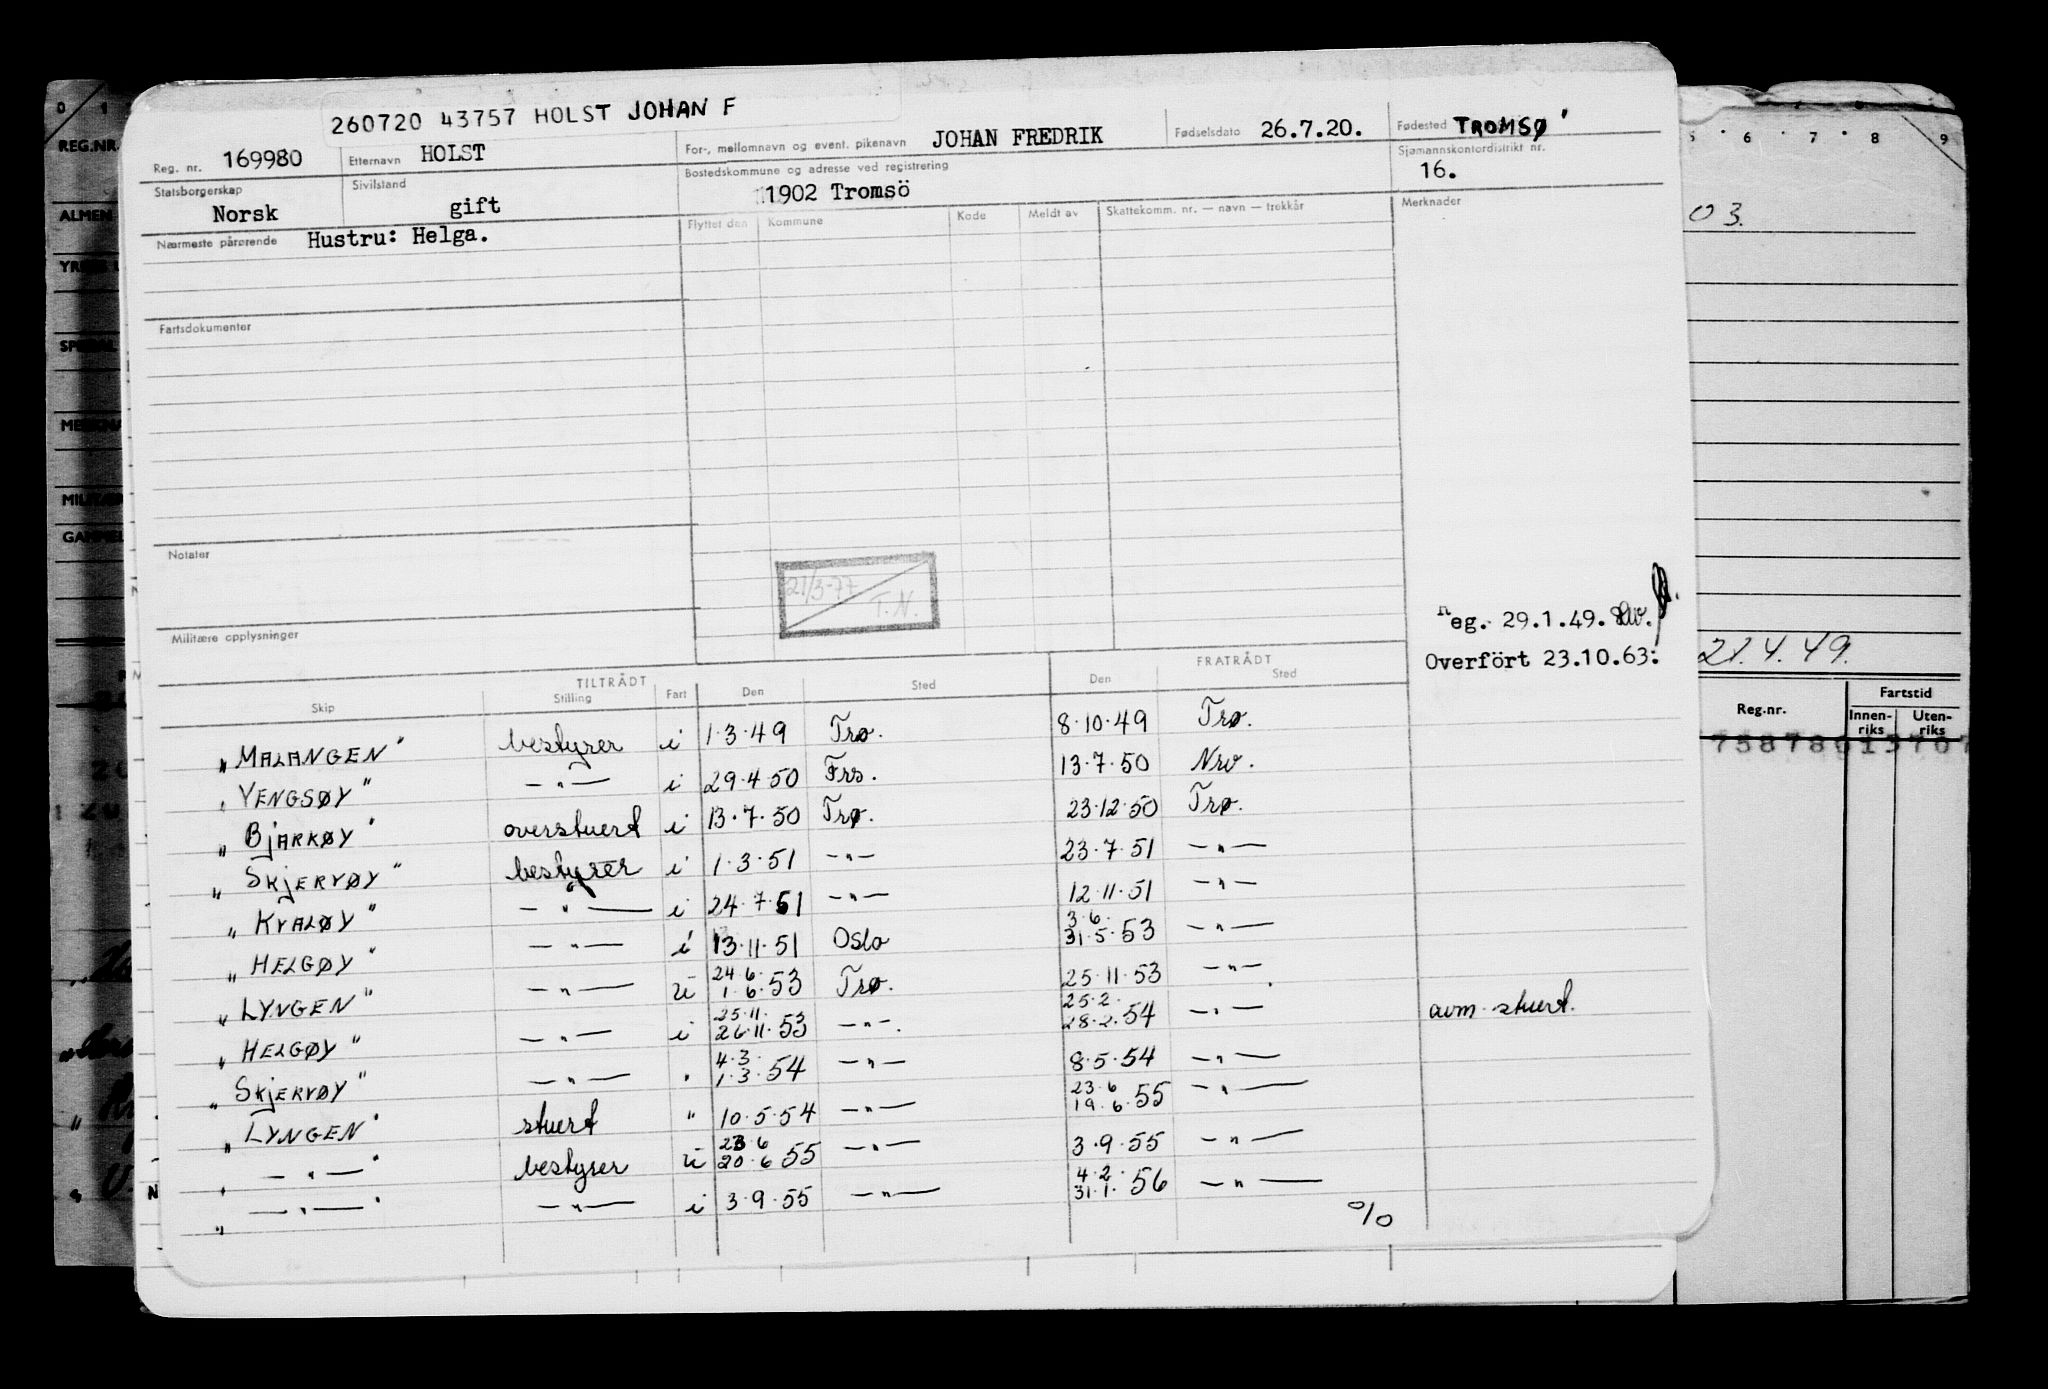 260720 43757 HOLST JOHAN F
Reg. nr. 169980 Etternavn HOLST For-, mellomnavn og event. pikenavn JOHAN FREDRIK Fødselsdato 26.7.20. Fødested TROMSØ
Statsborgerskap Norsk Sivilstand gift Bostedskommune og adresse ved registrering 1902 Tromsö Sjømannskontordistrikt nr. 16.
Nærmeste pårørende Hustru: Helga. Flyttet den Kommune Kode Meldt av Skattekomm. nr. — navn — trekkår Merknader
Fartsdokumenter
Notater
21/3-77 T.N.
Militære opplysninger
Reg. 29.1.49.
Overfört 23.10.63:
TILTRÅDT FRATRÅDT
Skip Stilling Fart Den Sted Den Sted
"MALANGEN" bestyrer i 1.3.49 Trø. 8.10.49 Trø.
"VENGSØY" —"— i 29.4.50 Frs. 13.7.50 Nrv.
"BJARKØY" overstuert i 13.7.50 Trø. 23.12.50 Trø.
"SKJERVØY" bestyrer i 1.3.51 —"— 23.7.51 —"—
"KVALØY" —"— i 24.7.51 —"— 12.11.51 —"—
"HELGØY" —"— i 13.11.51 Oslo 3.6. 31.5.53 —"—
"LYNGEN" —"— u 24.6. 1.6.53 Trø. 25.11.53 —"—
"HELGØY" —"— i 25.11. 26.11.53 —"—. 25.2. 28.2.54 —"— avm. stuert.
"SKJERVØY" —"— " 4.3. 1.3.54 —"— 8.5.54 —"—
"LYNGEN" stuert " 10.5.54 —"— 23.6 19.6.55 —"—
"—"—" bestyrer u 23.6 20.6.55 —"— 3.9.55 —"—
"—"—" —"— i 3.9.55 —"— 4.2. 31.1.56 —"—
%
0 1
REG.NR.
ALMEN
SPESIAL
GAMMEL
6 7 8 9
03.
21.4.49.
Reg.nr. Fartstid
Innen-riks Uten-riks